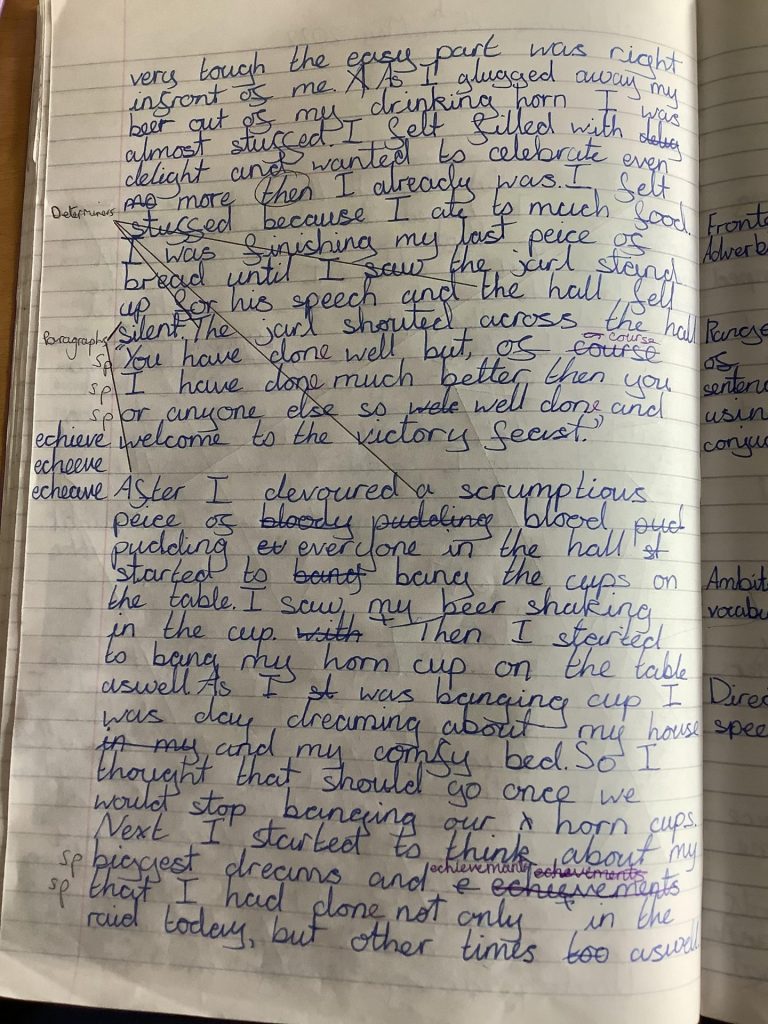 very tough the easy part was right
infront of me. As I glugged away my
beer out of my drinking horn I was
almost stuffed. I felt filled with
delight and wanted to celebrate even
mo more then I already was. I felt
Determiners
stuffed because I ate to much food.
I was finishing my last peice of
bread until I saw the jarl stand
up for his speech and the hall fell
Paragraphs
silent. The jarl shouted across the hall
of course
sp "You have done well but, of course
sp I have done much better then you
sp or anyone else so wele well done and
echieve welcome to the victory feast."
echeeve
echeave After I devoured a scrumptious
peice of bloody pudding blood pud
pudding ev everyone in the hall st
started to bang bang the cups on
the table. I saw my beer shaking
in the cup. with Then I started
to bang my horn cup on the table
aswell. As I st was banging cup I
was day dreaming about my house
in my and my comfy bed. So I
thought that should go once we
would stop banging our horn cups.
Next I started to think about my
echievemants echevtments
sp biggest dreams and e echievements
sp that I had done not only in the
raid today, but other times too aswell.
Fronte
Adverb
Range
of
senten
usin
conju
Ambit
vocabu
Direc
spee